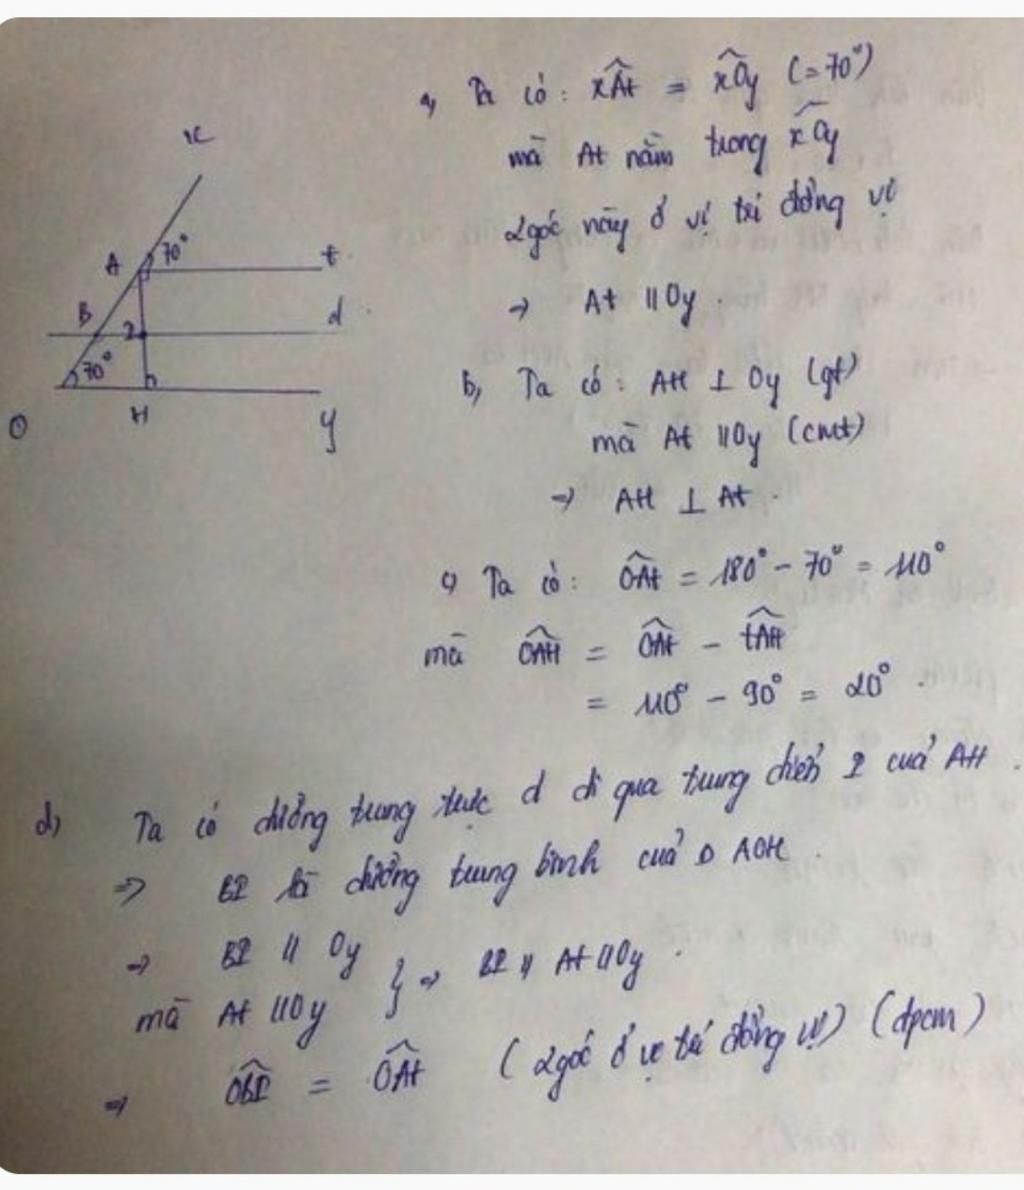 x
A 70° t
B I d
70°
O H y
a, Ta có: xÂt = xÔy (=70°)
mà At nằm trong xÔy
2 góc này ở vị trí đồng vị
→ At // Oy.
b, Ta có: AH ⊥ Oy (gt)
mà At // Oy (cmt)
→ AH ⊥ At.
c, Ta có: OÂt = 180° - 70° = 110°
mà OÂH = OÂt - tÂH
= 110° - 90° = 20°.
d, Ta có đường trung trực d đi qua trung điểm I của AH.
=> BI là đường trung bình của Δ AOH.
→ BI // Oy
mà At // Oy } → BI // At // Oy.
=> OB̂I = OÂt (2 góc ở vị trí đồng vị) (đpcm)